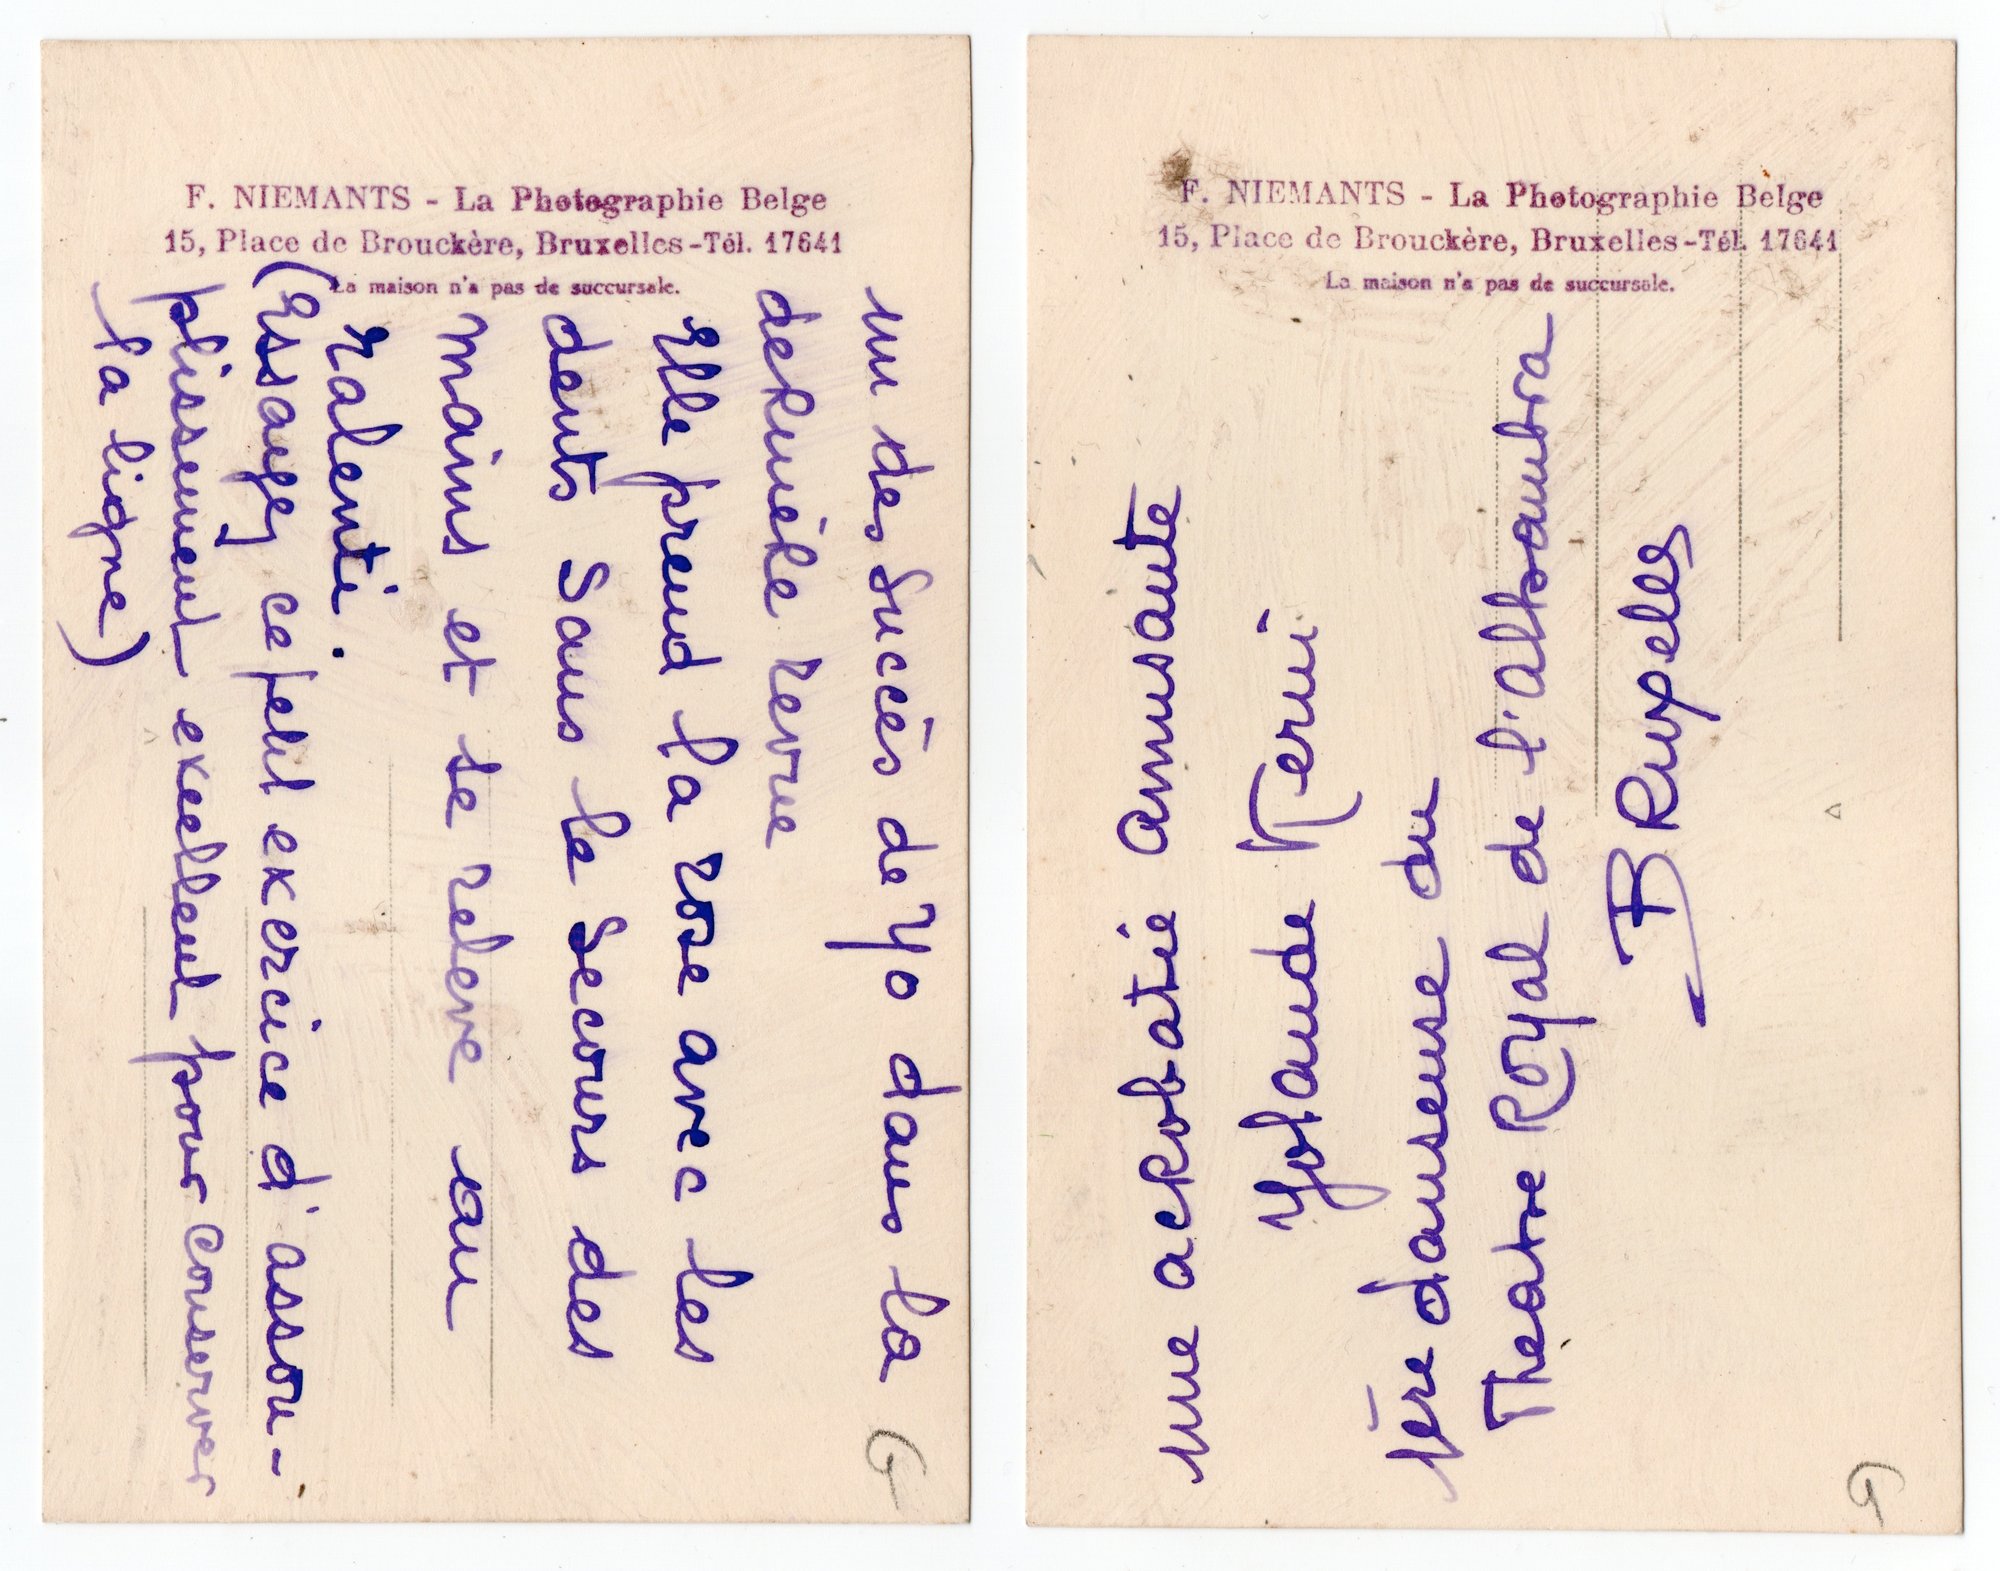 F. NIEMANTS - La Photographie Belge
15, Place de Brouckère, Bruxelles - Tél. 17641
La maison n'a pas de succursale.
un des succès de Yo dans la
dernière revue
Elle prend la rose avec les
dents sans le secours des
mains et se relève au
ralenti.
(Essayez ce petit exercice d'assou-
plissement exellent pour conserver
la ligne)
G
F. NIEMANTS - La Photographie Belge
15, Place de Brouckère, Bruxelles - Tél. 17641
La maison n'a pas de succursale.
une acrobatie amusante
Yolande Kerni
1ère danseuse du
Theatre Royal de l'Alhambra
Bruxelles
G